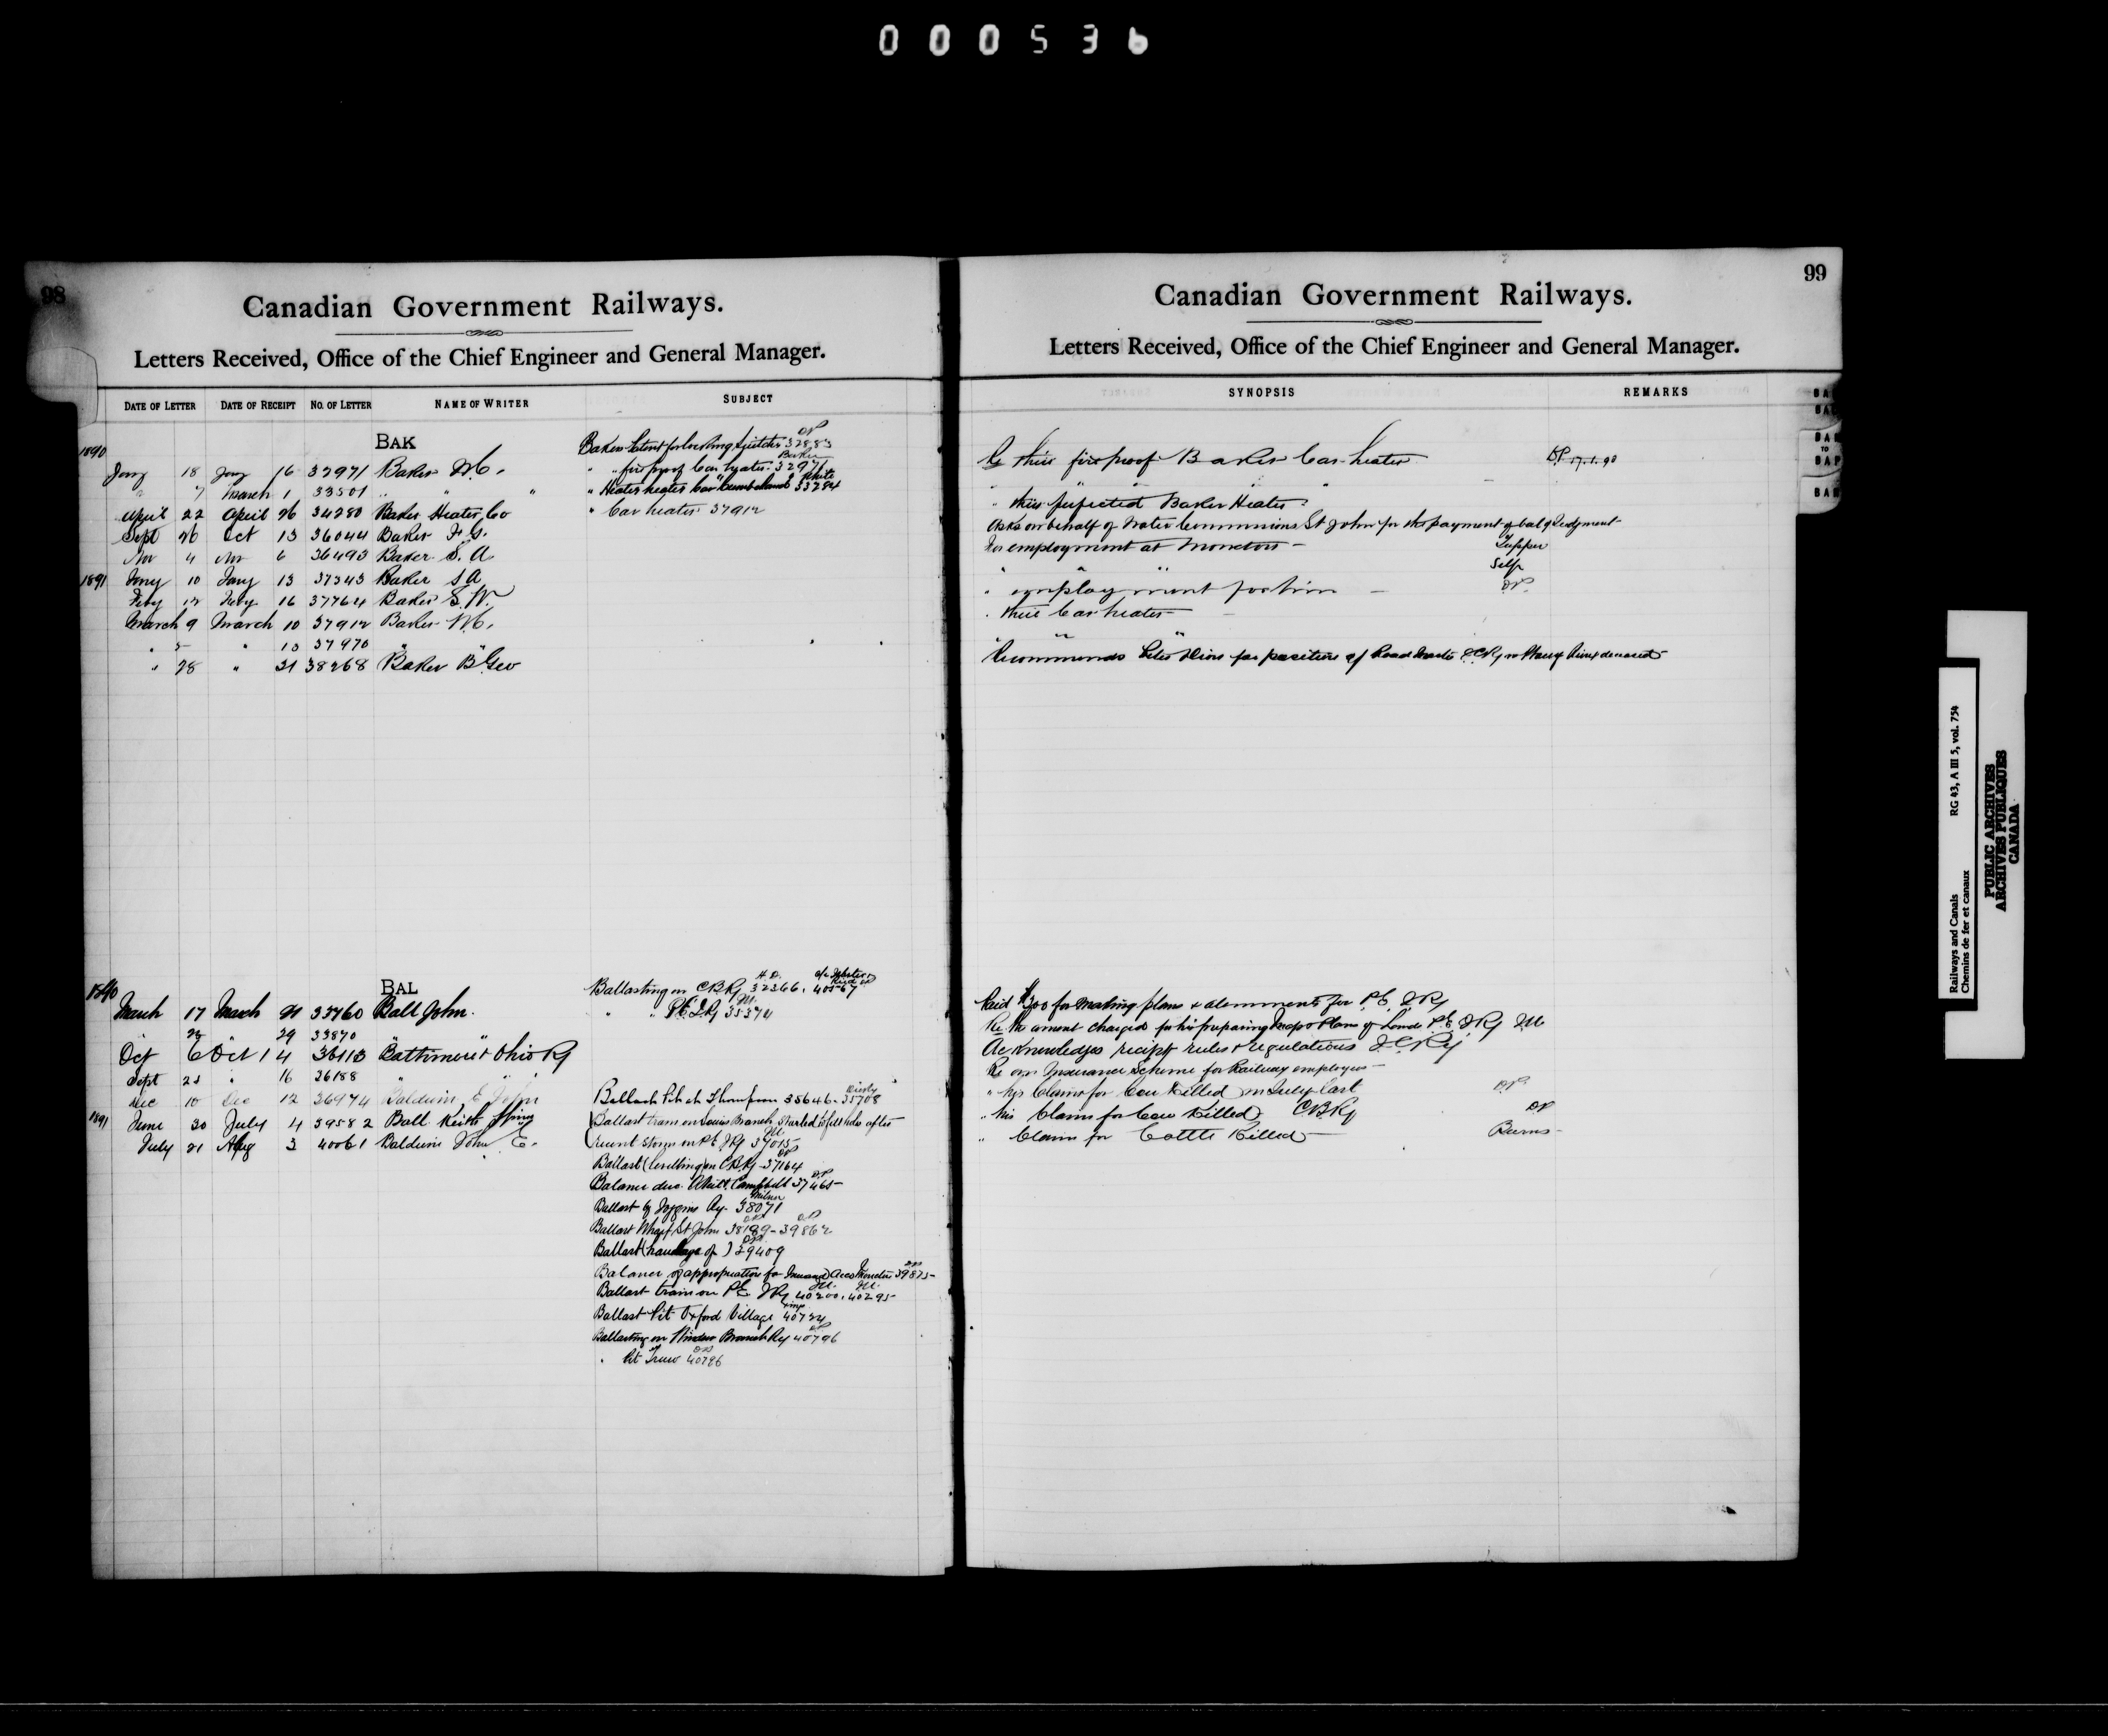 000536
98
Canadian Government Railways.
Letters Received, Office of the Chief Engineer and General Manager.
DATE OF LETTER DATE OF RECEIPT NO. OF LETTER NAME OF WRITER SUBJECT
1890 BAK
Bakers Patent for 32883
Jany 18 Jany 16 32971 Baker W.C. " " fire proof Car heater 32971
" 7 March 1 33501 " " " " Heater 33284
April 22 April 26 34280 Baker Heater Co " Car heater 37912
Sept 26 Oct 13 36044 Baker F. G.
Nov 4 Nov 6 36493 Baker S. A
1891 Jany 10 Jany 13 37343 Baker S A
Feby 12 Feby 16 37764 Baker S. W.
March 9 March 10 37912 Baker W.C.
" 5 " 13 37970 " "
" 28 " 31 38268 Baker B Geo
1890 BAL
Ballasting on C B Ry 32366, 40567
March 17 March 21 33760 Ball John. " " P.E.I. Ry 35374
" 26 " 29 33870 "
Oct 6 Oct 14 36113 Baltimore & Ohio Ry
Sept 25 " 16 36188 " "
Dec 10 Dec 12 36974 Baldwin E John Ballast Pit at Thompson 35646 - 35708
1891 June 30 July 4 39582 Ball Keith Ballast train on Souris Branch after
July 21 Aug 3 40061 Baldwin John E. recent storm on P.E. I Ry 37015
Ballast (levelling) on C.B. Ry 37164
Balance due Campbell 37465
Ballast by Joggins Ry. 38071
Ballast Wharf St John 38189 - 39862
Ballast (haulage of) 39409
Balance of appropriation for 39875
Ballast train on P E I Ry 40200, 40295
Ballast Pit Oxford Village 40724
Ballasting on Windsor Branch Ry 40796
" Pit Truro 40796
99
Canadian Government Railways.
Letters Received, Office of the Chief Engineer and General Manager.
SYNOPSIS REMARKS
Re their fire proof Baker Car heater DP 17.1.90
" their perfected Baker Heater
Asks on behalf of Water Commissioners St John for the payment of bal of Judgment
For employment at Moncton Tupper
" " " Self
" employment position DP
" their Car heater
" " "
Recommends for position of Road Master I.C.Ry deceased
Paid $300 for making plans & for P.E. I Ry
Re amount charged for his preparing Maps & Plans of Land P.E. I Ry
Acknowledges receipt rules & regulations I.C.Ry
Re Insurance Scheme for Railway employees
" his Claim for Cow Killed in July last DP
" his Claim for Cow Killed CB Ry DP
" Claim for Cattle Killed Burns
BAK
TO
BAP
BAR
Railways and Canals RG 43, A III 5, vol. 754
Chemins de fer et canaux
PUBLIC ARCHIVES
ARCHIVES PUBLIQUES
CANADA